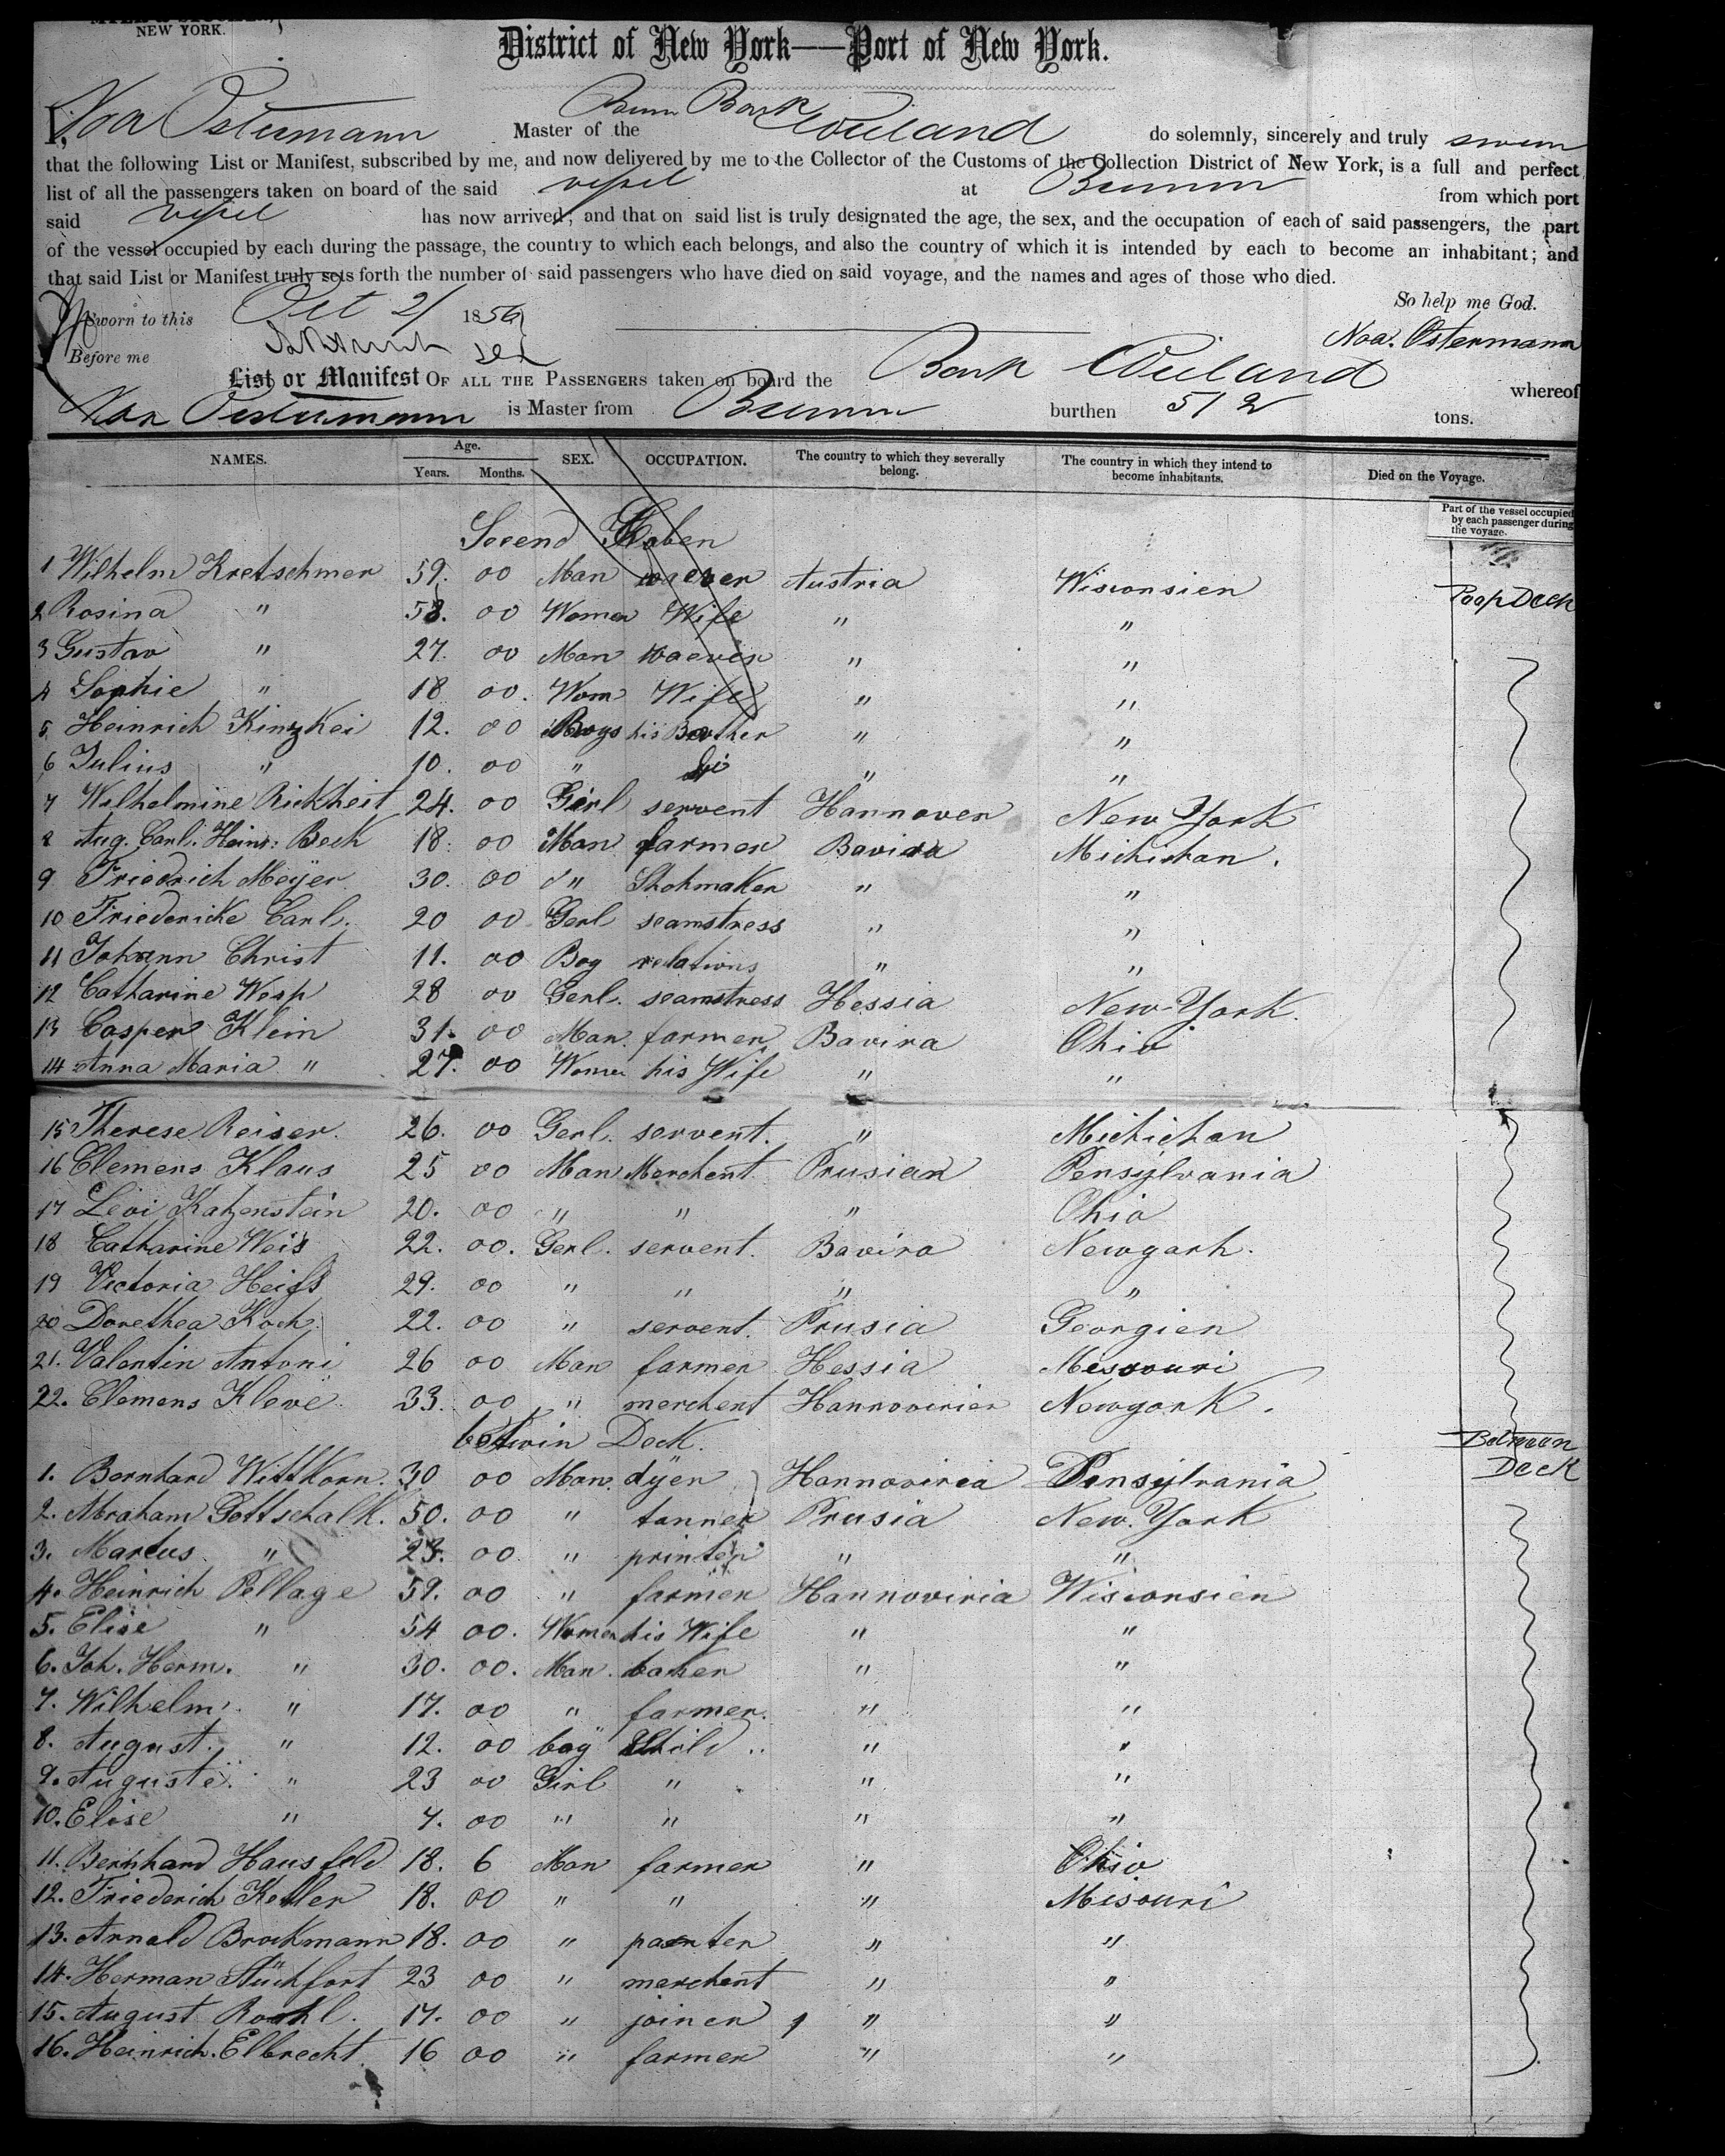 NEW YORK.
District of New York—Port of New York.
I, Noa Ostermann Master of the Brem Bark Wieland do solemnly, sincerely and truly swear
that the following List or Manifest, subscribed by me, and now delivered by me to the Collector of the Customs of the Collection District of New York, is a full and perfect
list of all the passengers taken on board of the said vessel at Bremen from which port
said vessel has now arrived; and that on said list is truly designated the age, the sex, and the occupation of each of said passengers, the part
of the vessel occupied by each during the passage, the country to which each belongs, and also the country of which it is intended by each to become an inhabitant; and
that said List or Manifest truly sets forth the number of said passengers who have died on said voyage, and the names and ages of those who died.
So help me God.
Sworn to this Oct 21 1856
Noa. Ostermann
Before me
List or Manifest OF ALL THE PASSENGERS taken on board the Bark Wieland whereof
Noa Ostermann is Master from Bremen burthen 512 tons.
NAMES. Age. Years. Months. SEX. OCCUPATION. The country to which they severally belong. The country in which they intend to become inhabitants. Died on the Voyage.
Part of the vessel occupied by each passenger during the voyage.
Secend Kaben
1 Wilhelm Kretschmer 59. 00 Man waever Austria Wisconsien Poop Deck
2 Rosina " 58. 00 Women Wife " "
3 Gustav " 27. 00 Man waever " "
4 Sophie " 18 00. Wom Wife " "
5 Heinrich Kinzkei 12. 00 Boys his Brother " "
6 Julius " 10. 00 " " "
7 Wilhelmine Rickheit 24. 00 Girl servent Hannover New York
8 Aug. Carl. Heinr: Beck 18. 00 Man farmer Bavira Michichan.
9 Friedrich Meÿer 30. 00 " Shohmaker " "
10 Friedericke Carl. 20 00 Gerl seamstress " "
11 Johann Christ 11. 00 Boy relations " "
12 Catharine Wesp 28 00 Gerl. seamstress Hessia New-York.
13 Casper Klein 31. 00 Man. farmer Bavira Ohio
14 Anna Maria " 27. 00 Women his Wife " "
15 Therese Reiser. 26. 00 Gerl. servent. " Michichan
16 Clemens Klaus 25 00 Man Merchent Prusian Pensylvania
17 Levi Katzenstein 20. 00 " " " Ohio
18 Catharine Weis 22. 00. Gerl. servent. Bavira Newyork.
19 Victoria Heifs 29. 00 " " " "
20 Dorethea Koch 22. 00 " servent. Prusia Georgien
21. Valentin Antoni 26 00 Man farmer Hessia Missouri
22. Clemens Kleve 33. 00 " merchent Hannovirien Newyork.
betwin Deck.
Between Deck
1. Bernhard Wittkorn. 30 00 Man. dÿer Hannoviria Pensylvania
2. Abraham Gottschalk. 50. 00 " tanner Prusia New. York
3. Marcus " 23. 00. " printer " "
4. Heinrich Pellage 59. 00 " farmer Hannoviria Wisconsien
5. Elise " 54 00. Women his Wife " "
6. Joh. Herm. " 30. 00. Man. baker " "
7. Wilhelm. " 17. 00 " farmer. " "
8. August. " 12. 00 boy Child " "
9. Auguste. " 23 00 Girl " " "
10. Elise " 7. 00 " " " "
11. Bernhard Hausfeld 18. 6 Man farmer " Ohio
12. Friederich Keller 18. 00 " " " Misouri
13. Arnold Brockmann 18. 00 " painter " "
14. Herman 23 00 " merchent " "
15. August 17. 00 " joiner " "
16. Heinrich. Elbrecht. 16 00 " farmer " "